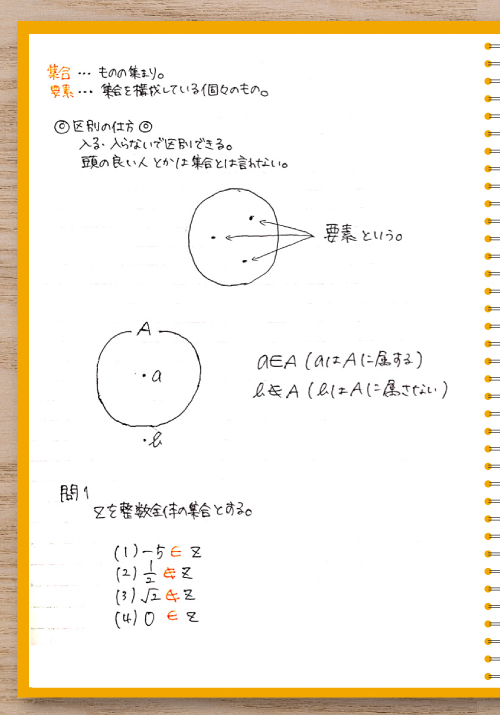 集合 … ものの集まり。
要素 … 集合を構成している個々のもの。
◎区別の仕方◎
入る・入らないで区別できる。
頭の良い人 とかは集合とは言わない。
要素 という。
A
a
a∈A (aはAに属する)
b∉A (bはAに属さない)
b
問1
Zを整数全体の集合とする。
(1) −5 ∈ Z
(2) 1/2 ∉ Z
(3) √2 ∉ Z
(4) 0 ∈ Z